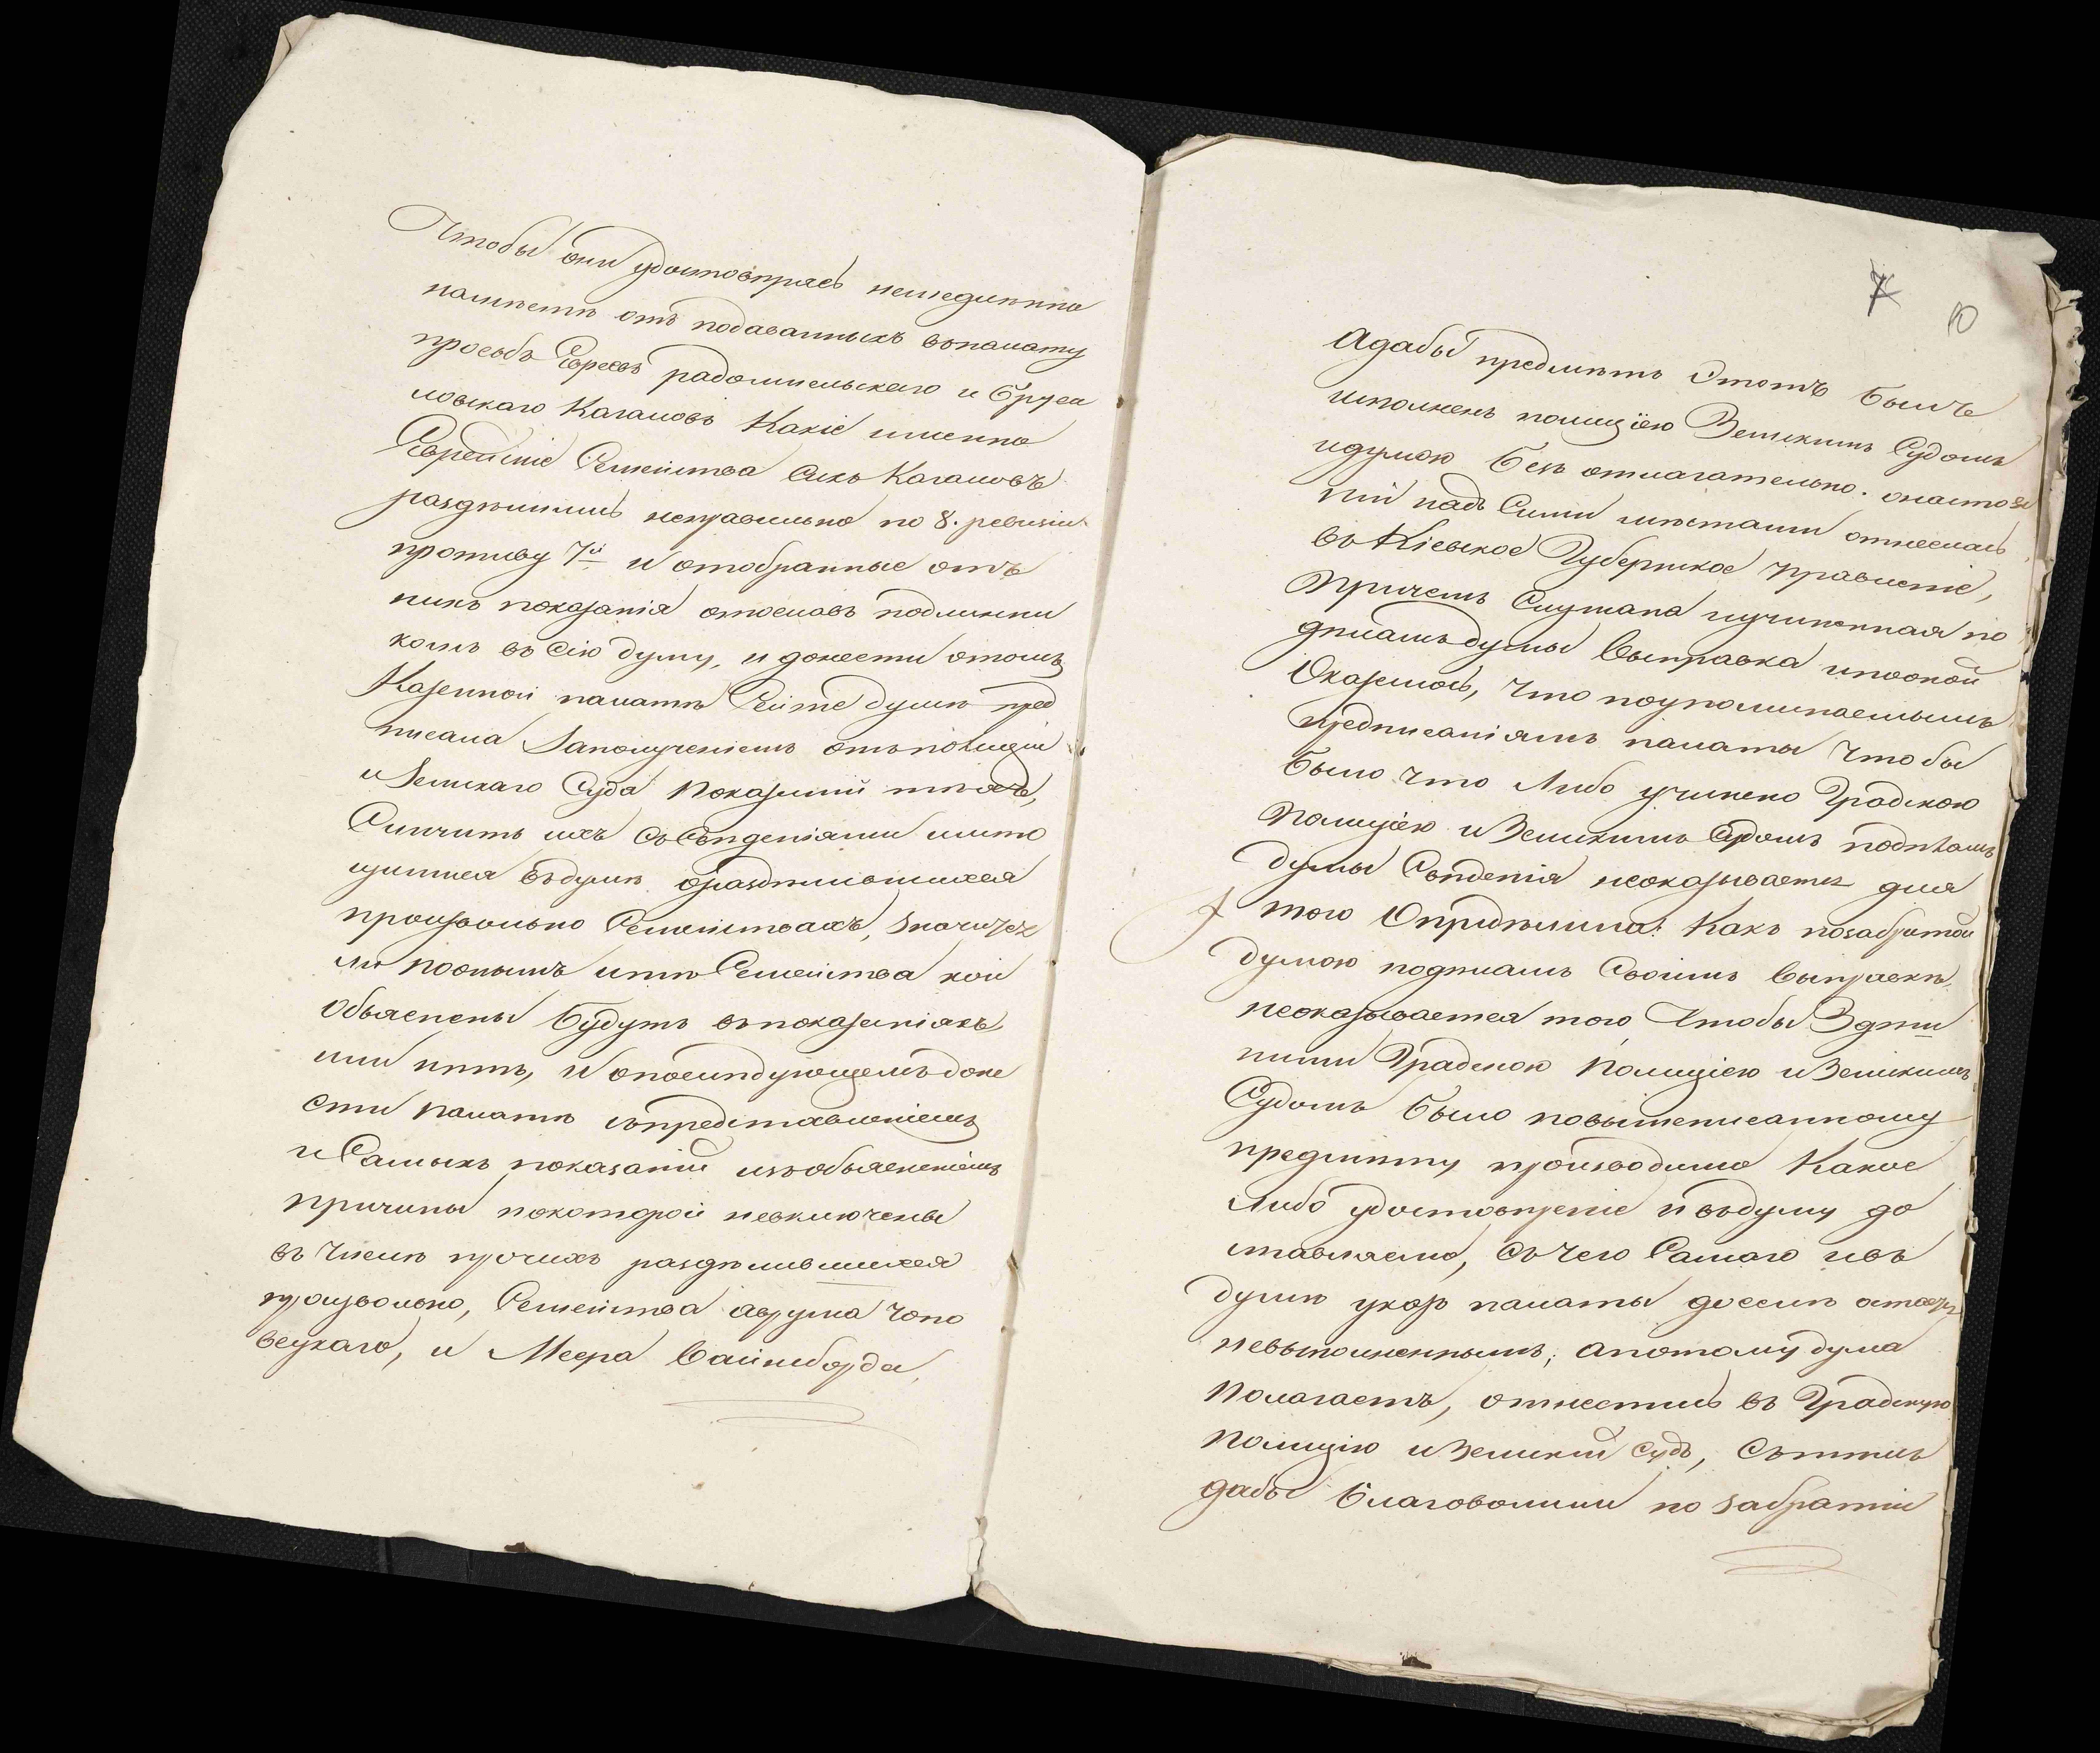 Чтобы они удостовѣрясь немедлѣнно
намѣстѣ отъ подаванныхъ вопалату
просьбъ Евреевъ радомисльскаго и Бруси
ловскаго Кагаловъ Какіе именно
Еврейскіе Семейства сихъ Кагаловъ
раздѣлились неправильно по 8. ревизіи
противу 7й и отобранные отъ
нихъ показанія отославъ подлинни
комъ въ сію думу, и донести отомъ
Казенной палатѣ Сейже думѣ пред
писала Заполученіемъ отъ полиціи
и Земскаго Суда показаній тѣхъ,
Сличить ихъ съ Свѣденіями имѣю
щимися въ думѣ ораздѣлившихся
произвольно Семействахъ, значутся
ли поонымъ итѣ Семейства кои
Объяснены будутъ въ показаніяхъ
или нѣтъ, и опослѣдующемъ доне
сти палатѣ съ представленіемъ
и Самыхъ показаній изъ объясненіемъ
причины покоторой невключены
въ Числѣ прочихъ раздѣлившихся
произвольно, Семейства аврума Чопо
вецкаго, и Меера Вайнборда,
7
10
Адабы предмѣтъ Этотъ былъ
исполненъ полиціею Земскимъ Судомъ
идумою безъ отлагательно. онастоя
ніи надъ Сими мѣстами отнеслась
въ Кіевское Губернское правленіе,
Причемъ Слушана иучиненная по
дѣламъ думы Выправка ипооной
Оказалось, Что поупоминаемымъ
предписаніямъ палаты Чтобы
было что Либо учинено Градскою
Полиціею и Земскимъ Судомъ подѣламъ
думы Свѣденія неоказывается для
того Опридѣлила: Какъ позабратой
думою подѣламъ Своимъ Выправкѣ
неоказывается того, Чтобы Здѣш
ними Градскою Полиціею и Земскимъ
Судомъ было повышеписанному
предмѣту производимо Какое
Либо удостовѣреніе и въ думу до
ставляемо, съ чего Самаго исъ
думѣ указ палаты доселѣ остается
невыполненнымъ, апотому дума
Полагаетъ, отнестись въ Градскую
Полицію и Земскій Судъ, Съ тѣмъ
дабы благоволили по забратіи